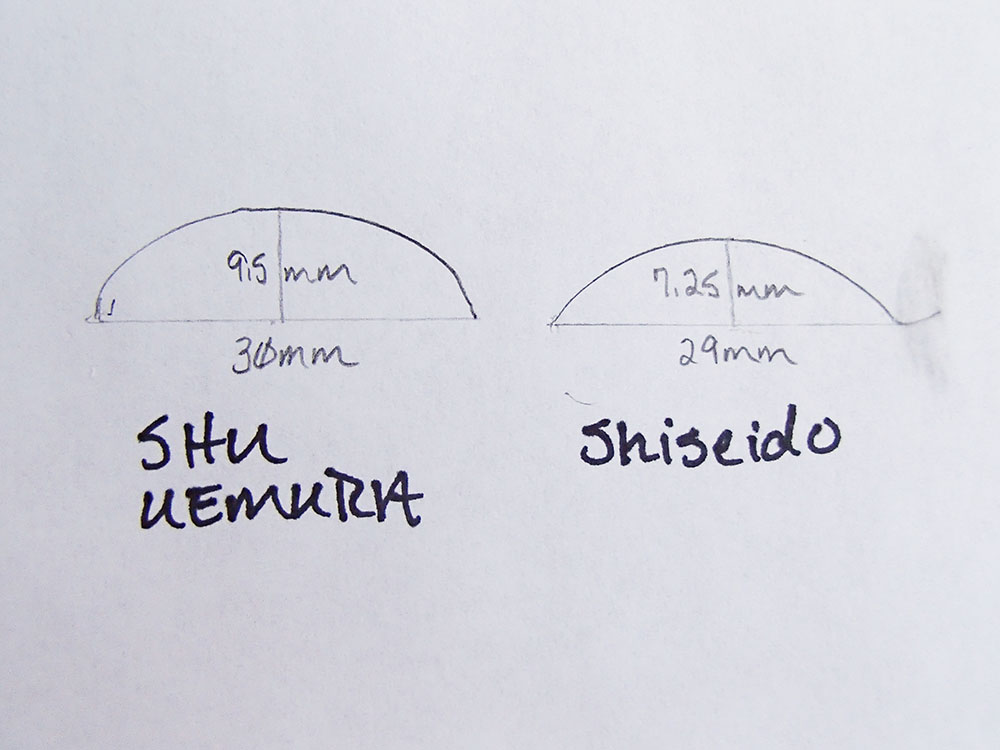 9.5 mm
7.25 mm
29mm
SHU
UEMURA
Shiseido